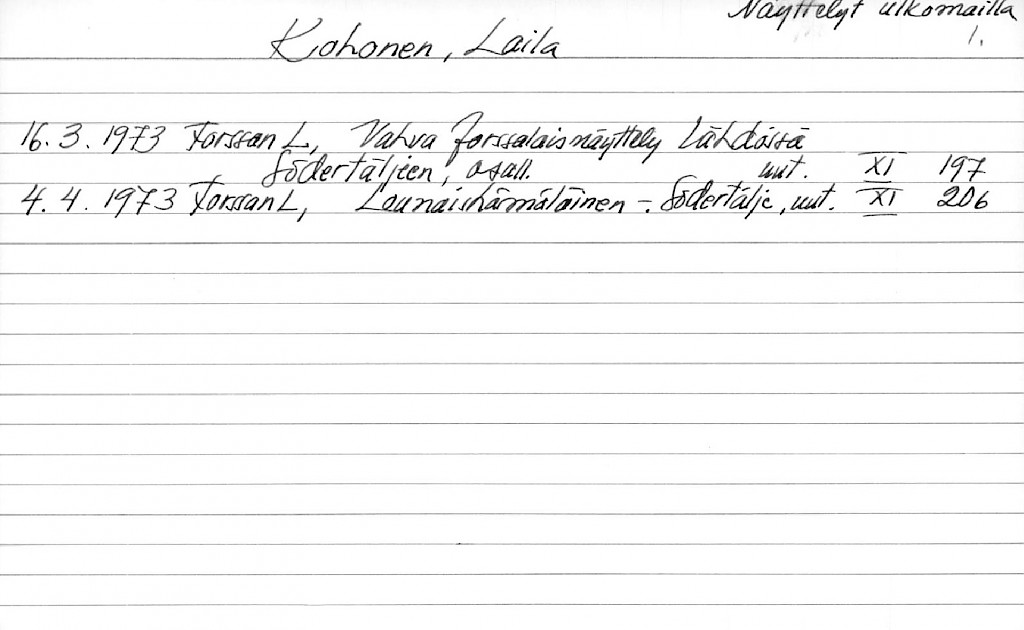 Näyttelyt ulkomailla
1.
Kohonen, Laila
16.3.1973 Forssan L, Vahva forssalaisnäyttely lähdössä
Södertäljeen, osall. uut. XI 197
4.4.1973 Forssan L, Lounaishämäläinen -. Södertälje, uut. XI 206